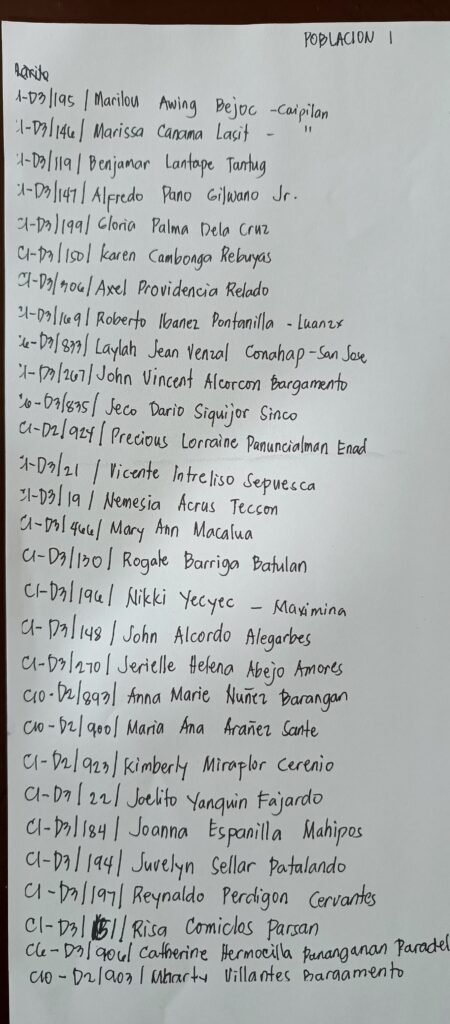 POBLACION 1
1-D3/195/ Marilou Awing Bejoc - Caipilan
1-D3/146/ Marissa Canama Lagit - "
1-D3/119/ Benjamar Lantape Tantug
1-D3/147/ Alfredo Pano Gilwano Jr.
1-D3/199/ Gloria Palma Dela Cruz
C1-D3/150/ Karen Cambonga Rebuyas
C1-D3/306/ Axel Providencia Relado
1-D3/169/ Roberto Ibanez Pontanilla - Luanzx
6-D3/833/ Laylah Jean Venzal Conahap - San Jose
1-D3/267/ John Vincent Alcorcon Bargamento
10-D3/835/ Jeco Dario Siquijor Sinco
C1-D2/924/ Precious Lorraine Panuncialman Enad
1-D3/21 / Vicente Intreliso Sepuesca
1-D3/19 / Nemesia Acrus Tecson
C1-D3/466/ Mary Ann Macalua
C1-D3/130/ Rogale Barriga Batulan
C1-D3/196/ Nikki Yecyec - Maximina
C1-D3/148/ John Alcordo Alegarbes
C1-D3/270/ Jerielle Helena Abejo Amores
C10-D2/893/ Anna Marie Nuñez Barangan
C10-D2/900/ Maria Ana Arañez Sante
C1-D2/923/ Kimberly Miraplor Cerenio
C1-D3/22/ Joelito Yanquin Fajardo
C1-D3/184/ Joanna Espanilla Mahipos
C1-D3/194/ Juvelyn Sellar Patalando
C1-D3/197/ Reynaldo Perdigon Cervantes
C1-D3/ / Risa Comiclos Parsan
C6-D3/906/ Catherine Hermocilla Pananganan Paradel
C10-D2/903/ Mharty Villantes Bargamento